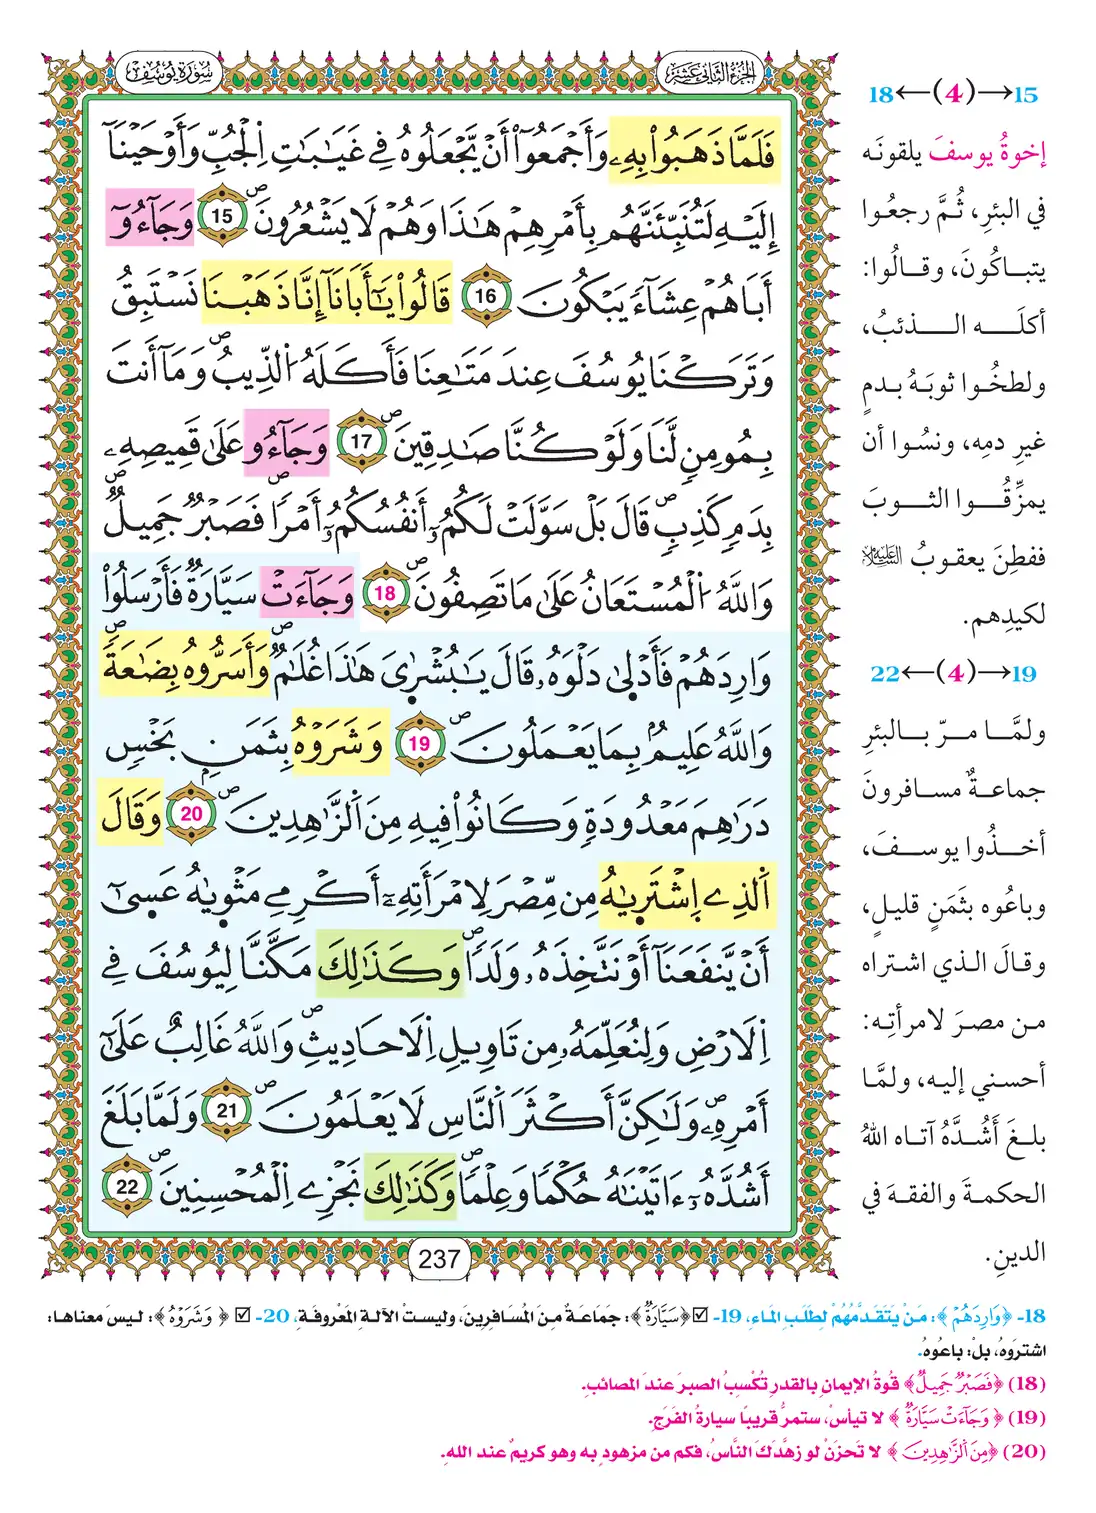 الجزء الثاني عشر
سورة يوسف
فَلَمَّا ذَهَبُوا۟ بِهِۦ وَأَجْمَعُوٓا۟ أَنْ يَّجْعَلُوهُ فِے غَيَٰبَٰتِ اِ۬لْجُبِّ وَأَوْحَيْنَآ
إِلَيْهِ لَتُنَبِّئَنَّهُم بِأَمْرِهِمْ هَٰذَا وَهُمْ لَا يَشْعُرُونَۖ 15 وَجَآءُوٓ
أَبَاهُمْ عِشَآءً يَبْكُونَ 16 قَالُوا۟ يَٰٓأَبَانَآ إِنَّا ذَهَبْنَا نَسْتَبِقُ
وَتَرَكْنَا يُوسُفَ عِندَ مَتَٰعِنَا فَأَكَلَهُ اُ۬لذِّيبُۖ وَمَآ أَنتَ
بِمُومِنٍ لَّنَا وَلَوْ كُنَّا صَٰدِقِينَۖ 17 وَجَآءُو عَلَىٰ قَمِيصِهِۦ
بِدَمٍ كَذِبٍۖ قَالَ بَلْ سَوَّلَتْ لَكُمُۥٓ أَنفُسُكُمُۥٓ أَمْرًاۖ فَصَبْرٌ جَمِيلٌۖ
وَاللَّهُ اُ۬لْمُسْتَعَانُ عَلَىٰ مَا تَصِفُونَۖ 18 وَجَآءَتْ سَيَّارَةٌ فَأَرْسَلُوا۟
وَارِدَهُمْ فَأَدْلَىٰ دَلْوَهُۥ قَالَ يَٰبُشْرَٰىَ هَٰذَا غُلَٰمٌۖ وَأَسَرُّوهُ بِضَٰعَةًۖ
وَاللَّهُ عَلِيمٌۢ بِمَا يَعْمَلُونَۖ 19 وَشَرَوْهُ بِثَمَنٍۢ بَخْسٍ
دَرَٰهِمَ مَعْدُودَةٍ وَكَانُوا۟ فِيهِ مِنَ اَ۬لزَّٰهِدِينَۖ 20 وَقَالَ
اَ۬لذِے اِ۪شْتَر۪يٰهُ مِن مِّصْرَ لِامْرَأَتِهِۦٓ أَكْرِمِے مَثْوٜيٰهُ عَسَىٰٓ
أَنْ يَّنفَعَنَآ أَوْ نَتَّخِذَهُۥ وَلَدًاۖ وَكَذَٰلِكَ مَكَّنَّا لِيُوسُفَ فِے
اِ۬لَارْضِ وَلِنُعَلِّمَهُۥ مِن تَاوِيلِ اِ۬لَاحَادِيثِۖ وَاللَّهُ غَالِبٌ عَلَىٰٓ
أَمْرِهِۦۖ وَلَٰكِنَّ أَكْثَرَ اَ۬لنَّاسِ لَا يَعْلَمُونَۖ 21 وَلَمَّا بَلَغَ
أَشُدَّهُۥٓ ءَاتَيْنَٰهُ حُكْمًا وَعِلْمًاۖ وَكَذَٰلِكَ نَجْزِے اِ۬لْمُحْسِنِينَۖ 22
237
15→(4)←18
إخوةُ يوسفَ يلقونَه
في البئرِ، ثُمَّ رجعُوا
يتباكُونَ، وقالُوا:
أكلَه الذئبُ،
ولطخُوا ثوبَهُ بدمٍ
غيرِ دمِه، ونسُوا أن
يمزِّقُوا الثوبَ
ففطِنَ يعقوبُ عليه السلام
لكيدِهم.
19→(4)←22
ولمَّا مرّ بالبئرِ
جماعةٌ مسافرونَ
أخذُوا يوسفَ،
وباعُوه بثَمَنٍ قليلٍ،
وقالَ الذي اشتراه
من مصرَ لامرأتِه:
أحسني إليه، ولمَّا
بلغَ أَشُدَّهُ آتاه اللهُ
الحكمةَ والفقهَ في
الدينِ.
18- ﴿وَارِدَهُمْ﴾: مَنْ يَتَقَدَّمُهُمْ لِطَلَبِ المَاءِ، 19- ☑ ﴿سَيَّارَةٌ﴾: جمَاعَةٌ مِنَ المُسَافِرِينَ، وليستْ الآلةِ المَعْرُوفَةِ، 20- ☑ ﴿وَشَرَوْهُ﴾: ليسَ معناها:
اشتَرَوهُ، بلْ: باعُوهُ.
(18) ﴿فَصَبْرٌ جَمِيلٌ﴾ قُوةُ الإيمانِ بالقدرِ تُكْسِبُ الصبرَ عندَ المصائبِ.
(19) ﴿وَجَآءَتْ سَيَّارَةٌ﴾ لا تيأسْ، ستمرُّ قريبًا سيارةُ الفَرَجِ.
(20) ﴿مِنَ اَ۬لزَّٰهِدِينَ﴾ لا تَحزَنْ لو زهَّدَكَ النَّاسُ، فكم من مزهودٍ به وهو كريمٌ عند الله.